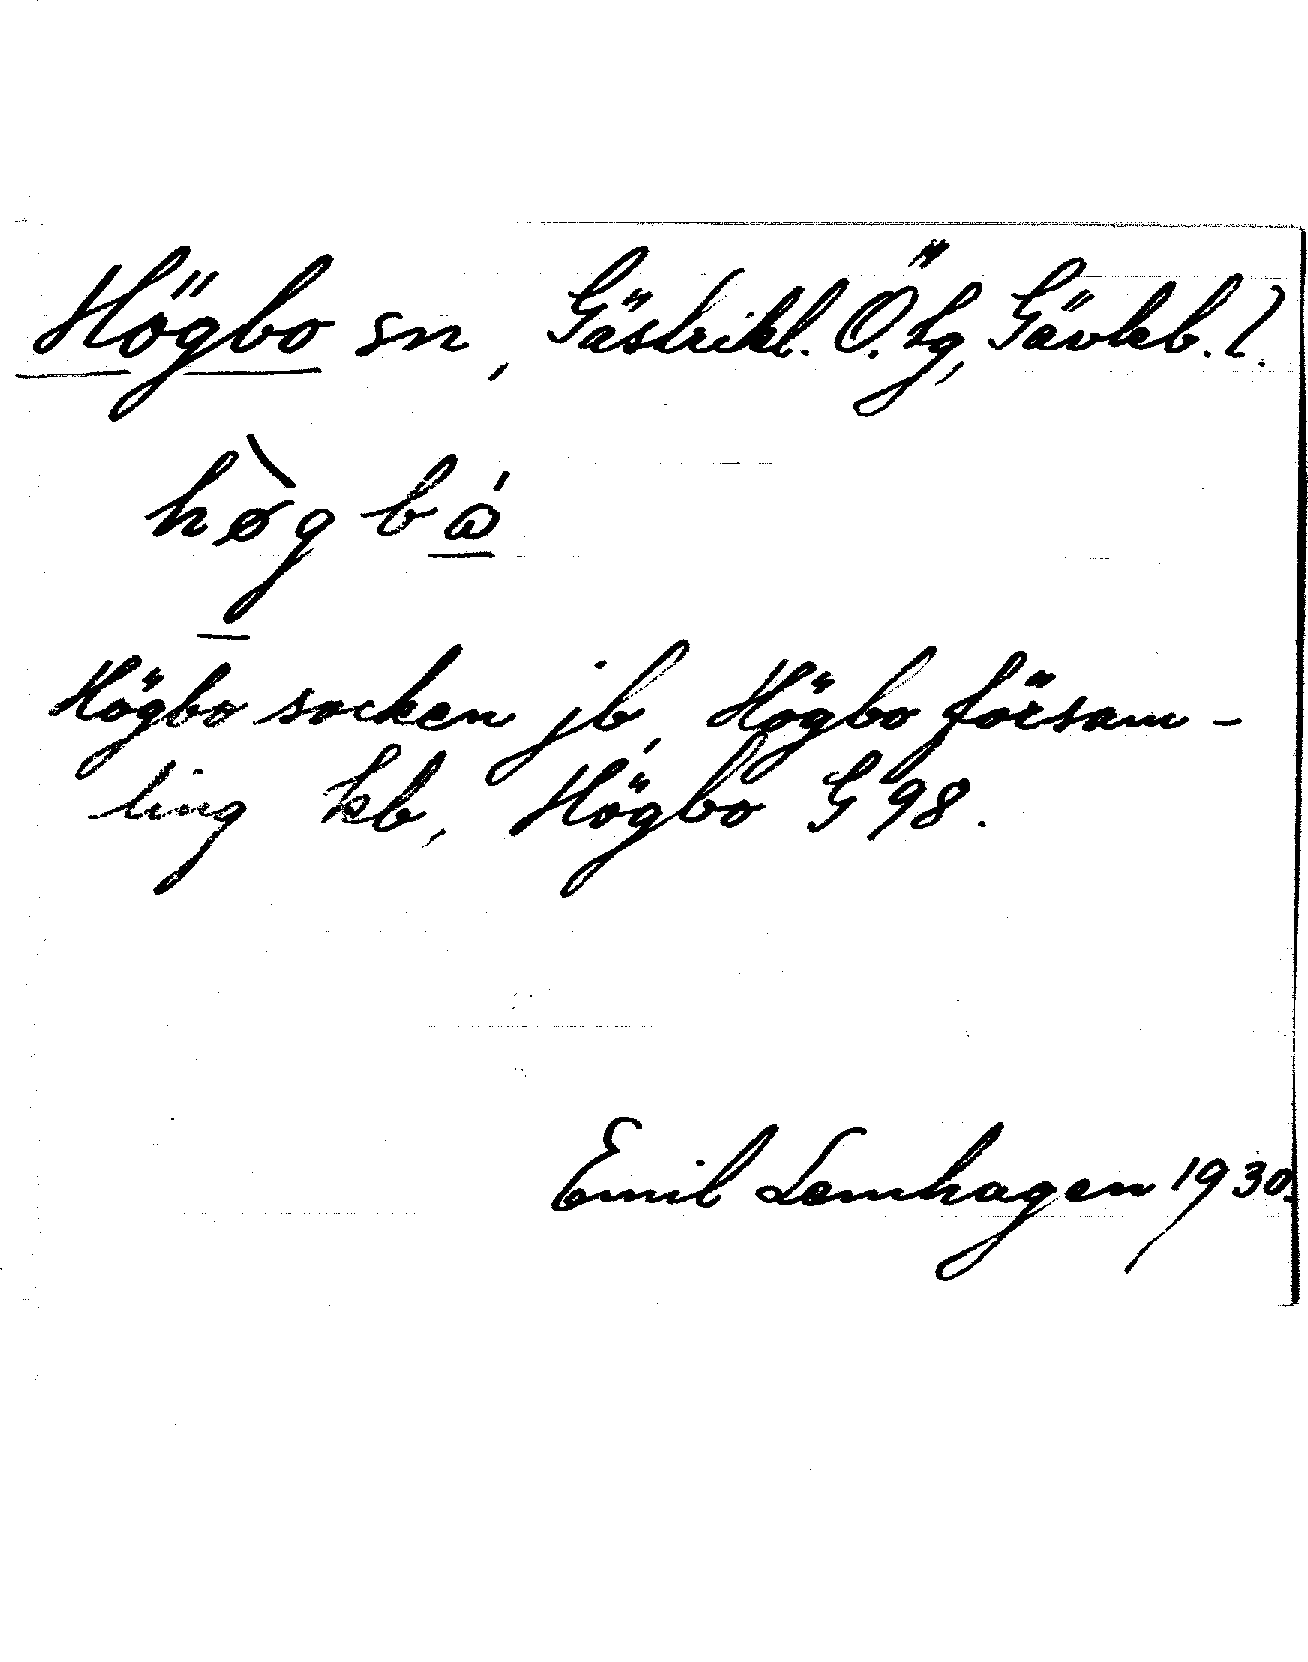 Högbo sn, Gästrikl. Ö. tg, Gävleb. l.
hø̀gbǻ
Högbo socken jb, Högbo försam-
ling kb, Högbo G 98.
Emil Lemhagen 1930.